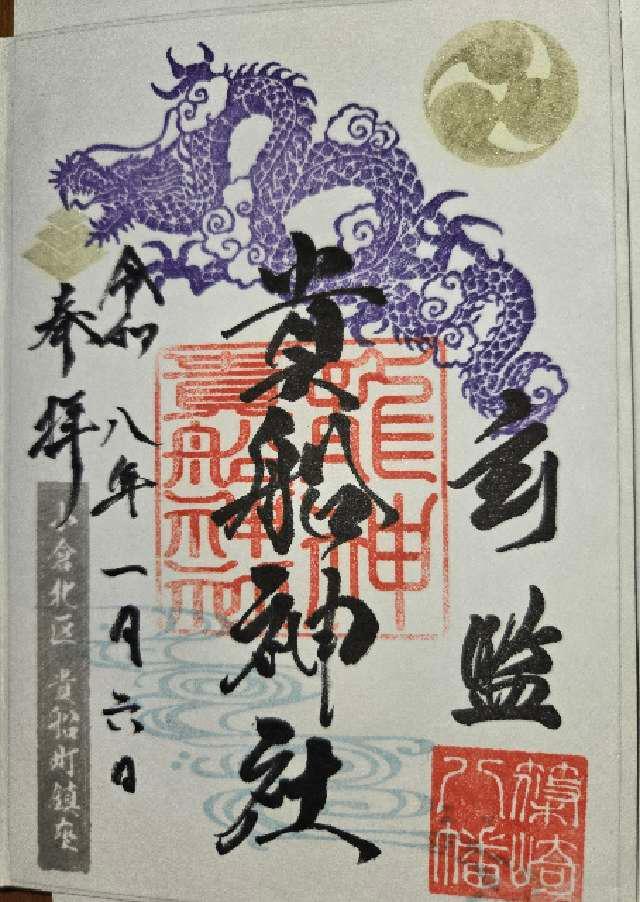 監
貴船神社
龍神
貴船神社
令和八年一月六日
奉拝
小倉北区 貴船町鎮座
篠崎
八幡